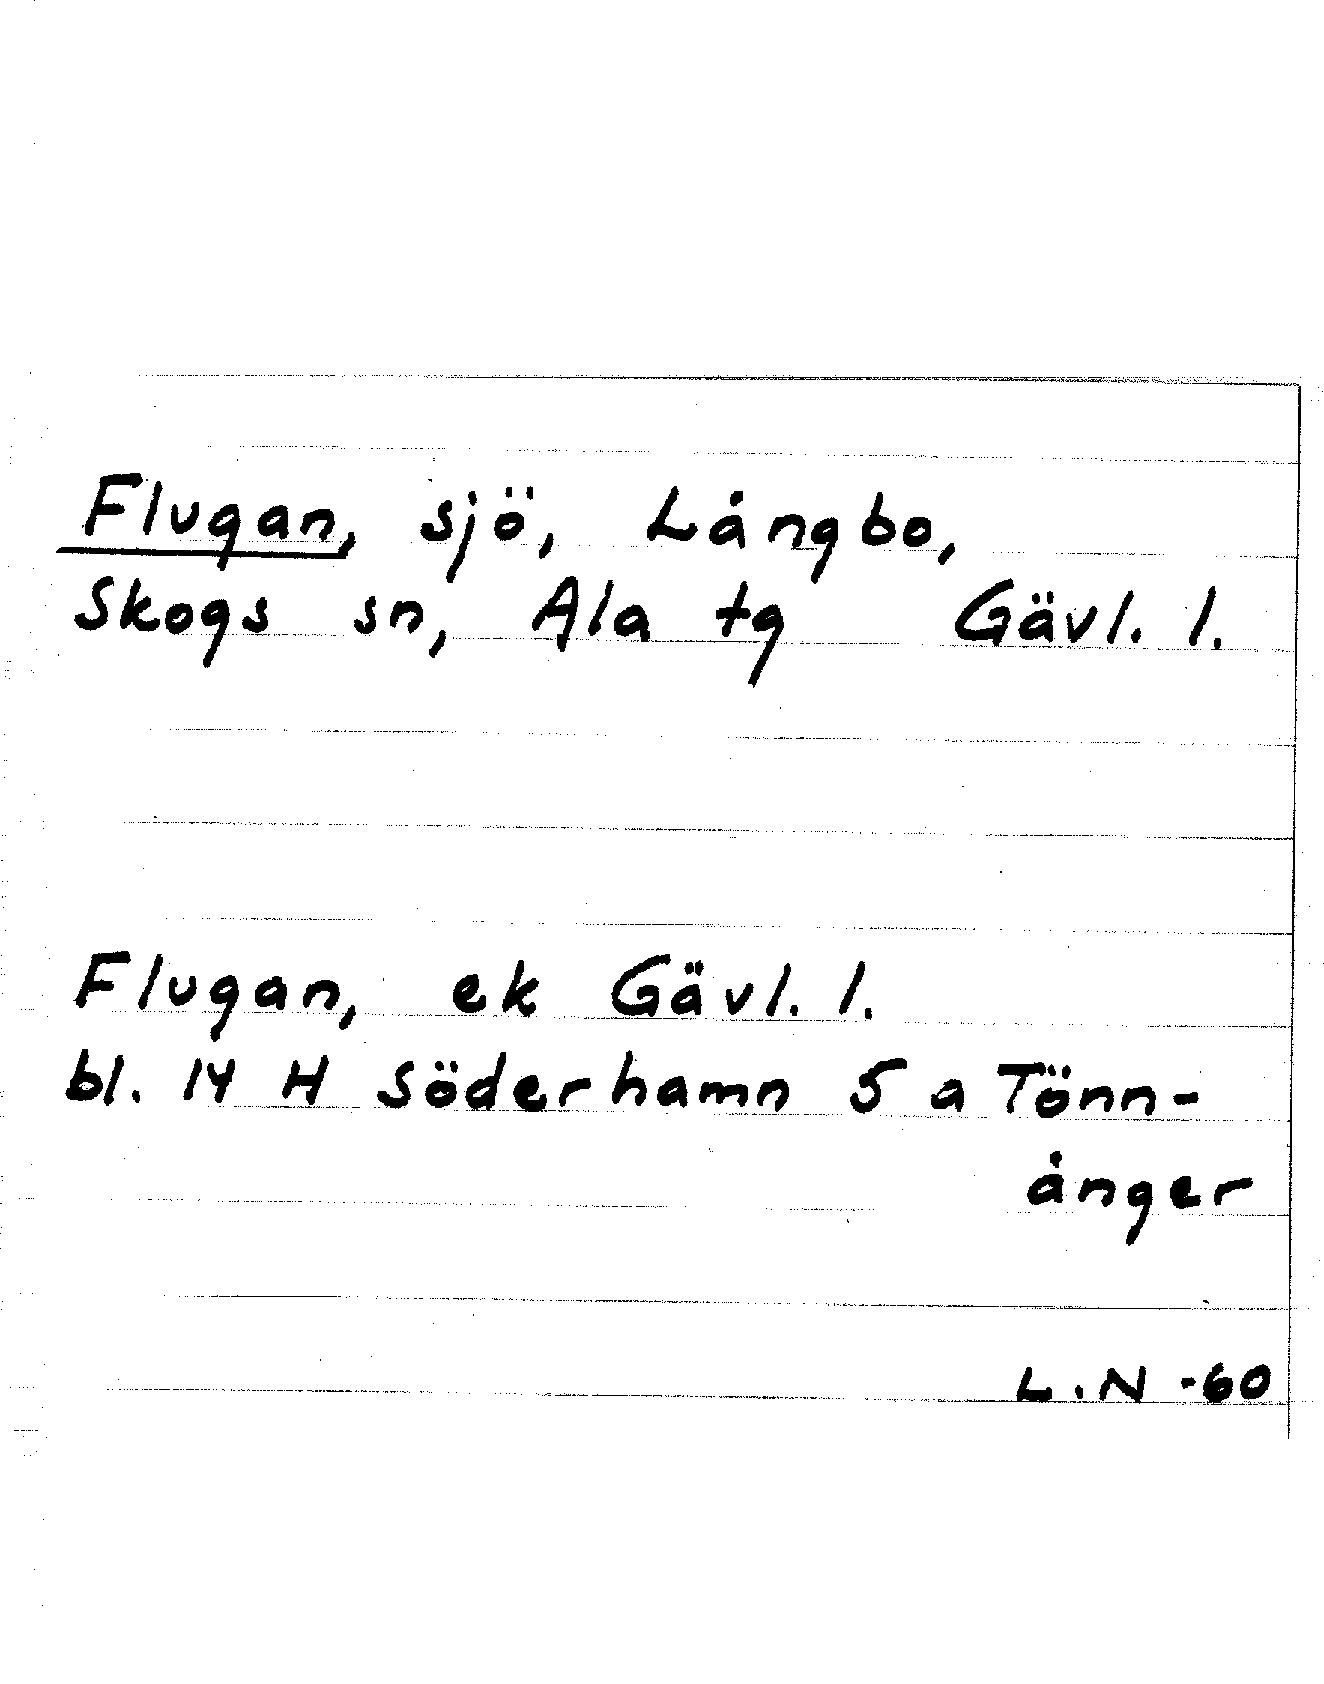 Flugan, sjö, Långbo,
Skogs sn, Ala tg Gävl. l.
Flugan, ek Gävl. l.
bl. 14 H Söderhamn 5 a Tönn-
ånger
L.N -60